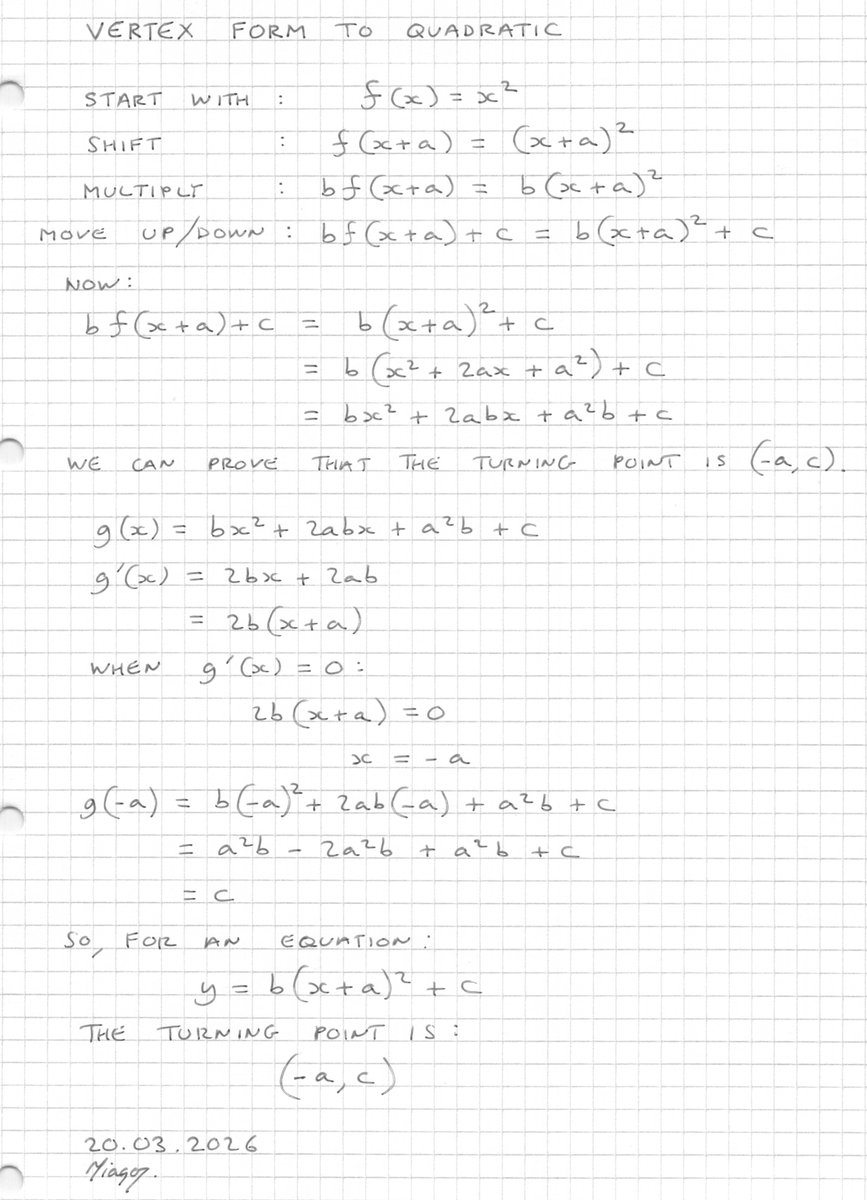 VERTEX FORM TO QUADRATIC
START WITH : f(x) = x²
SHIFT : f(x+a) = (x+a)²
MULTIPLY : bf(x+a) = b(x+a)²
MOVE UP/DOWN : bf(x+a) + c = b(x+a)² + c
NOW:
bf(x+a)+c = b(x+a)² + c
= b(x² + 2ax + a²) + c
= bx² + 2abx + a²b + c
WE CAN PROVE THAT THE TURNING POINT IS (-a, c).
g(x) = bx² + 2abx + a²b + c
g'(x) = 2bx + 2ab
= 2b(x+a)
WHEN g'(x) = 0 :
2b(x+a) = 0
x = -a
g(-a) = b(-a)² + 2ab(-a) + a²b + c
= a²b - 2a²b + a²b + c
= c
SO, FOR AN EQUATION :
y = b(x+a)² + c
THE TURNING POINT IS :
(-a, c)
20.03.2026